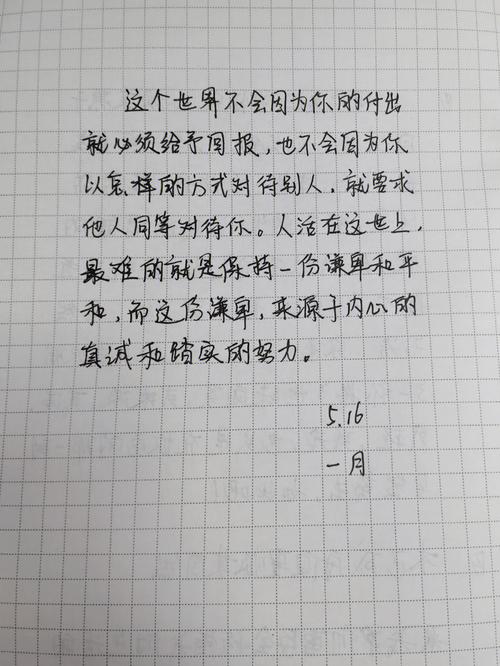 这个世界不会因为你的付出
就必须给予回报，也不会因为你
以怎样的方式对待别人，就要求
他人同等对待你。人活在这世上，
最难的就是保持一份谦卑和平
和，而这份谦卑，来源于内心的
真诚和踏实的努力。
5.16
一月